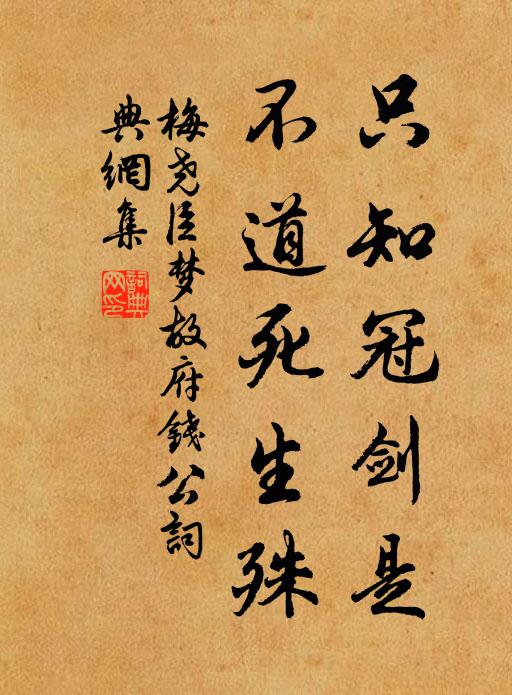 只知冠剑是
不道死生殊
梅尧臣梦故府錢公詞
典網集
詞典網印